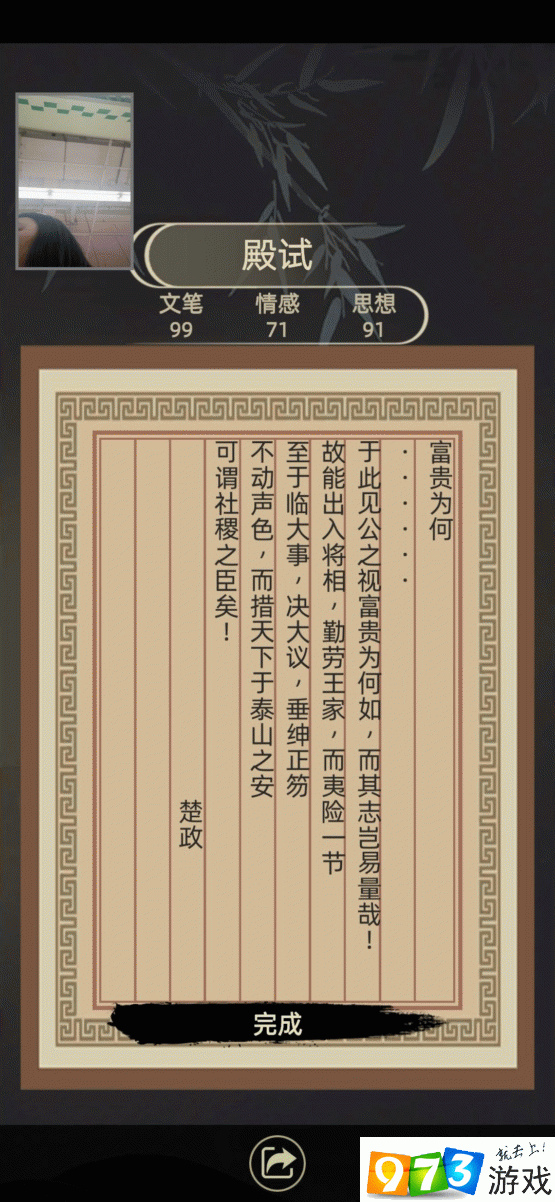 殿试
文笔 情感 思想
99 71 91
富贵为何
······
于此见公之视富贵为何如，而其志岂易量哉！
故能出入将相，勤劳王家，而夷险一节
至于临大事，决大议，垂绅正笏
不动声色，而措天下于泰山之安
可谓社稷之臣矣！
楚政
完成
就去上!
973游戏